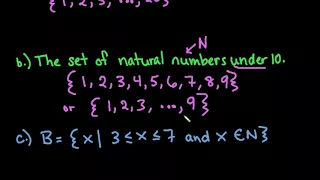 {1, 2, 3, ..., 20}
N
b.) The set of natural numbers under 10.
{1, 2, 3, 4, 5, 6, 7, 8, 9}
or {1, 2, 3, ..., 9}
c.) B = {x | 3 ≤ x ≤ 7 and x ∈ N}